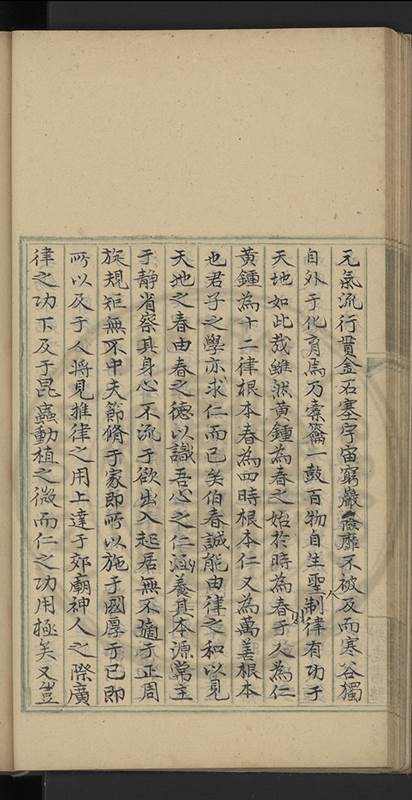 元氣流行貫金石塞宇宙窮巖廢壑靡不被及而寒谷獨
自外于化育焉乃橐籥一鼓百物自生聖人制律有功于
天地如此哉雖然黃鍾為春之始於時為春于人則為仁
黃鍾為十二律根本春為四時根本仁又為萬善根本
也君子之學亦求仁而已矣伯春誠能由律之和以見
天地之春由春之德以識吾心之仁涵養其本源常主
于靜省察其身心不流于欲出入起居無不適于正周
旋規矩無不中夫節脩于家即所以施于國厚于已即
所以及于人將見推律之用上達于郊廟神人之際廣
律之功下及于昆蟲動植之微而仁之功用極矣又豈